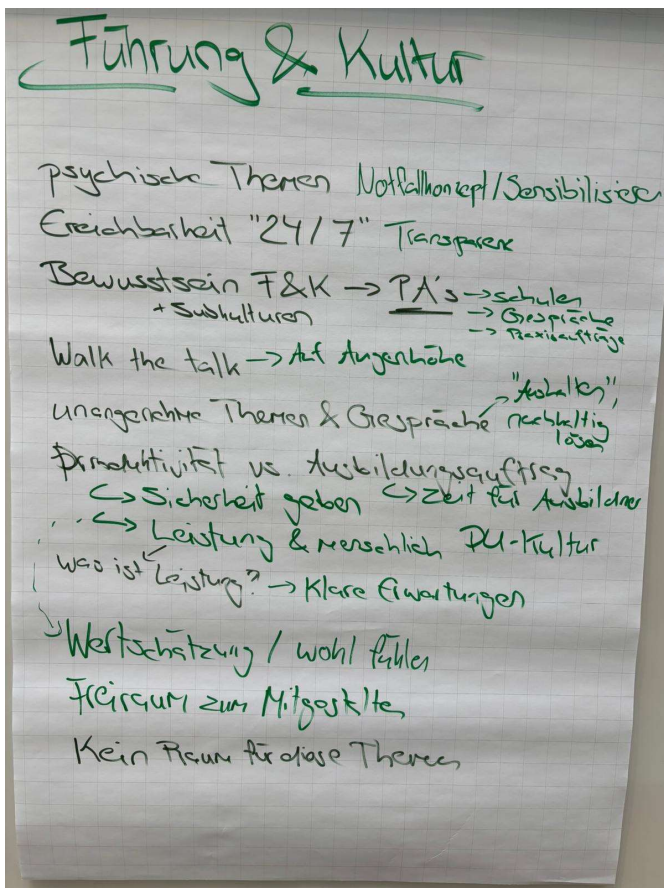 Führung & Kultur
psychische Themen Notfallkonzept/Sensibilisieren
Erreichbarheit "24/7" Transparenz
Bewusstsein F&K → PA's → schulen
+ Subkulturen → Gespräche
→ Praxisaufträge
Walk the talk → Auf Augenhöhe
unangenehme Themen & Gespräche → "Aushalten",
nachhaltig
lösen
Produktivität vs. Ausbildungsauftrag
↳ Sicherheit geben ↳ Zeit für Ausbildner
↳ Leistung & menschlich DU-Kultur
was ist Leistung? → Klare Erwartungen
Wertschätzung / wohl fühlen
Freiraum zum Mitgestalten
Kein Raum für diese Themen